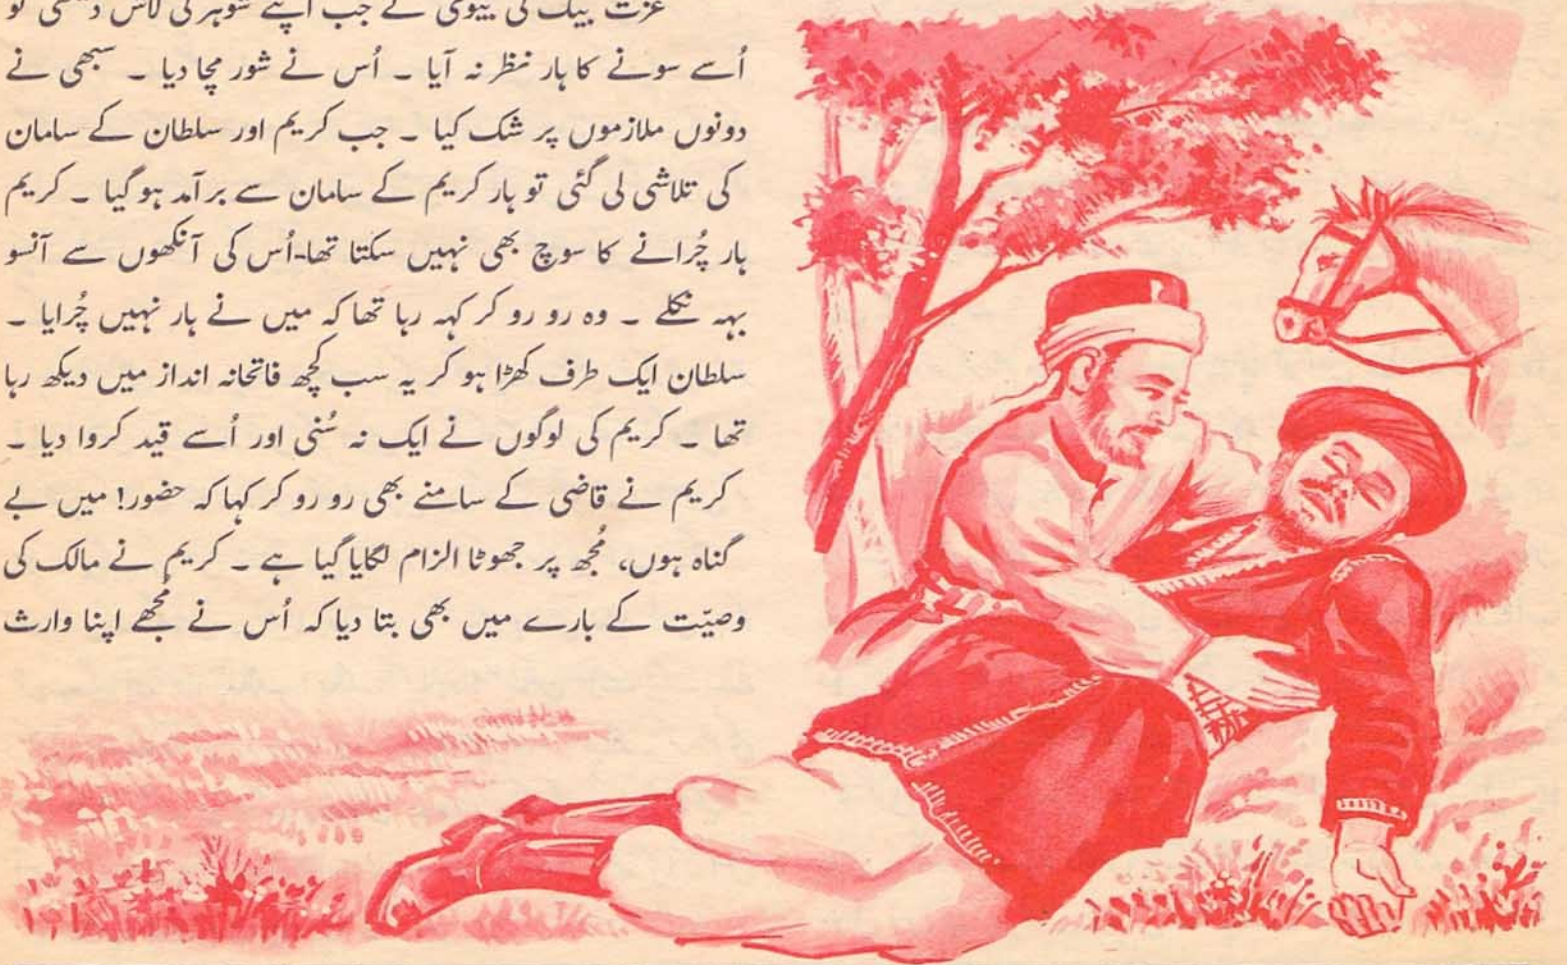 عزت بیگ کی بیوی نے جب اپنے شوہر کی لاش دیکھی تو
اُسے سونے کا ہار نظر نہ آیا ۔ اُس نے شور مچا دیا ۔ سبھی نے
دونوں ملازموں پر شک کیا ۔ جب کریم اور سلطان کے سامان
کی تلاشی لی گئی تو ہار کریم کے سامان سے برآمد ہو گیا ۔ کریم
ہار چُرانے کا سوچ بھی نہیں سکتا تھا-اُس کی آنکھوں سے آنسو
بہہ نکلے ۔ وہ رو رو کر کہہ رہا تھا کہ میں نے ہار نہیں چُرایا ۔
سلطان ایک طرف کھڑا ہو کر یہ سب کچھ فاتحانہ انداز میں دیکھ رہا
تھا ۔ کریم کی لوگوں نے ایک نہ سُنی اور اُسے قید کروا دیا ۔
کریم نے قاضی کے سامنے بھی رو رو کر کہا کہ حضور! میں بے
گناہ ہوں، مُجھ پر جھوٹا الزام لگایا گیا ہے ۔ کریم نے مالک کی
وصیّت کے بارے میں بھی بتا دیا کہ اُس نے مُجھے اپنا وارث